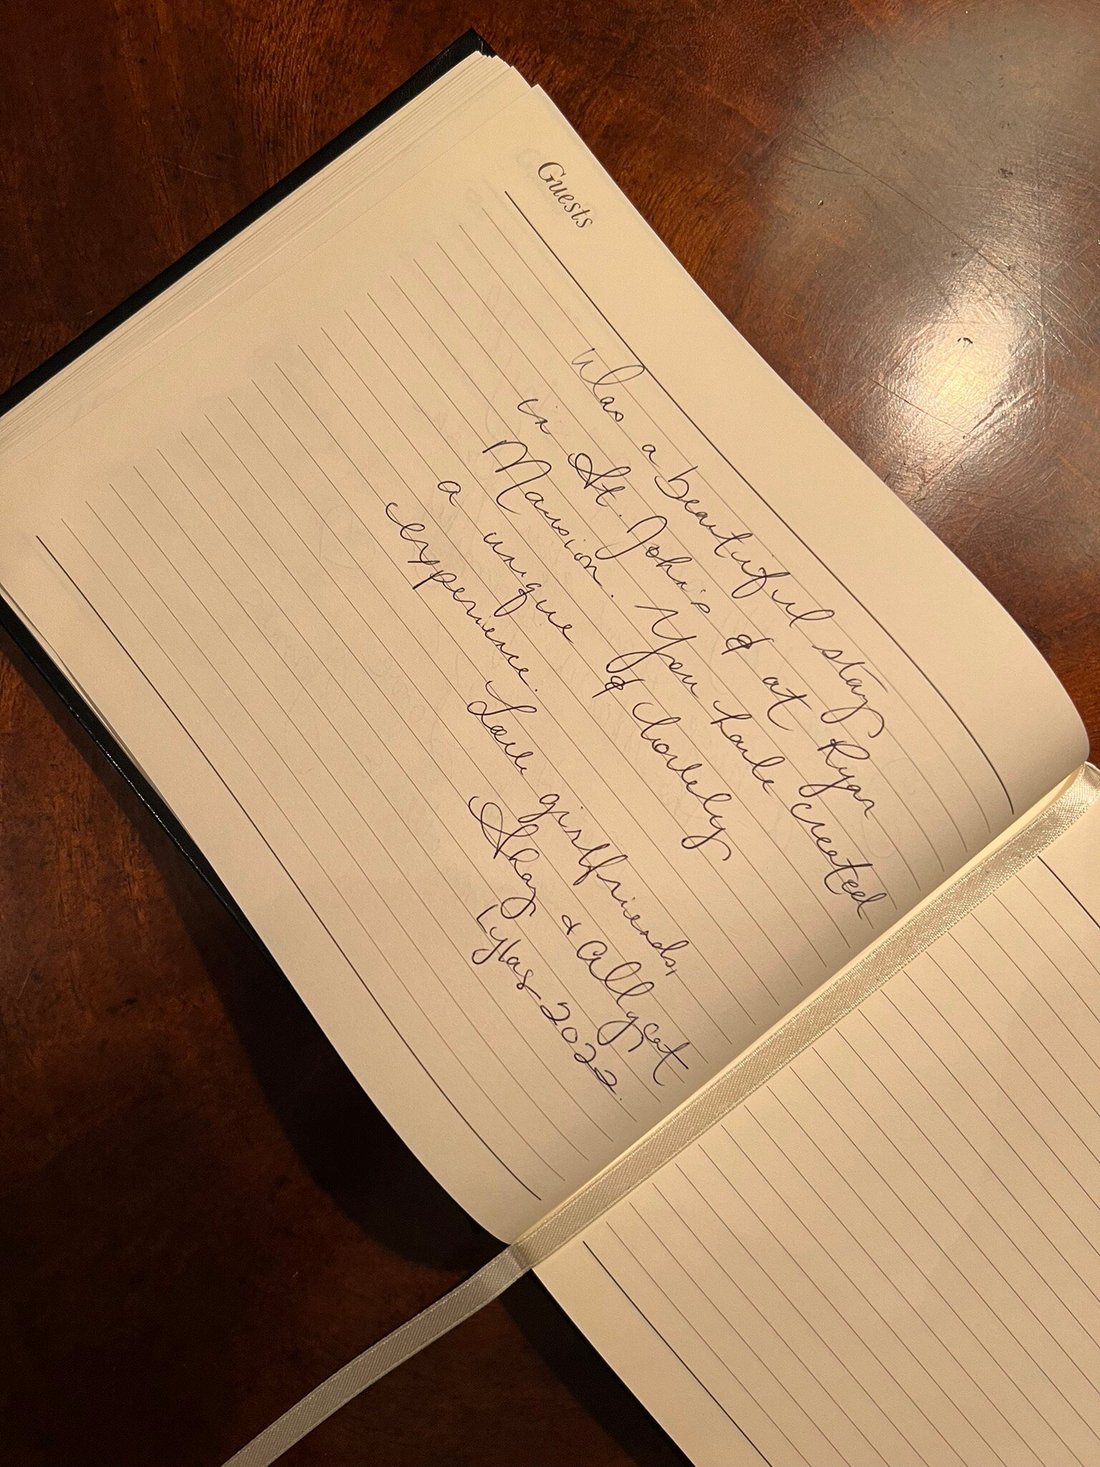 Guests
Was a beautiful stay
in St. John's & at Ryan
Mansion. You have created
a unique & lovely
experience.
Love girlfriends,
Shay &
2022.